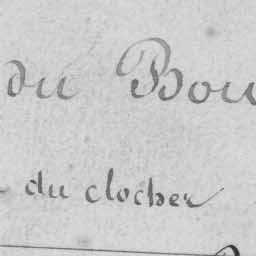 du Bou
du clocher